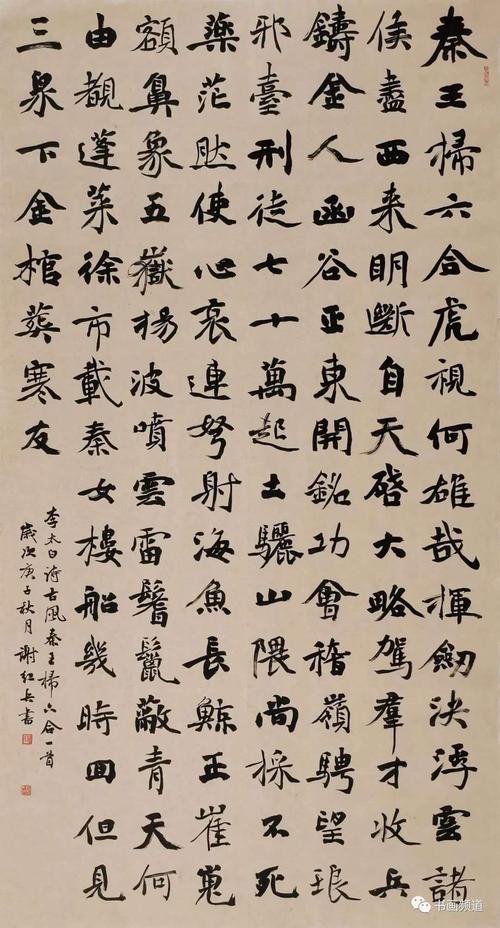 秦王掃六合虎視何雄哉揮劒決浮雲諸
侯盡西来明斷自天啓大略駕羣才收兵
鑄金人函谷正東開銘功會稽嶺騁望琅
邪臺刑徒七十萬起土驪山隈尚採不死
藥茫然使心哀連弩射海魚長鯨正崔嵬
額鼻象五嶽揚波噴雲雷鬐鬣蔽青天何
由覩蓬莱徐市載秦女樓船幾時回但見
三泉下金棺葬寒灰
李太白诗古風秦王掃六合一首
歲次庚子秋月谢红兵書
书画频道